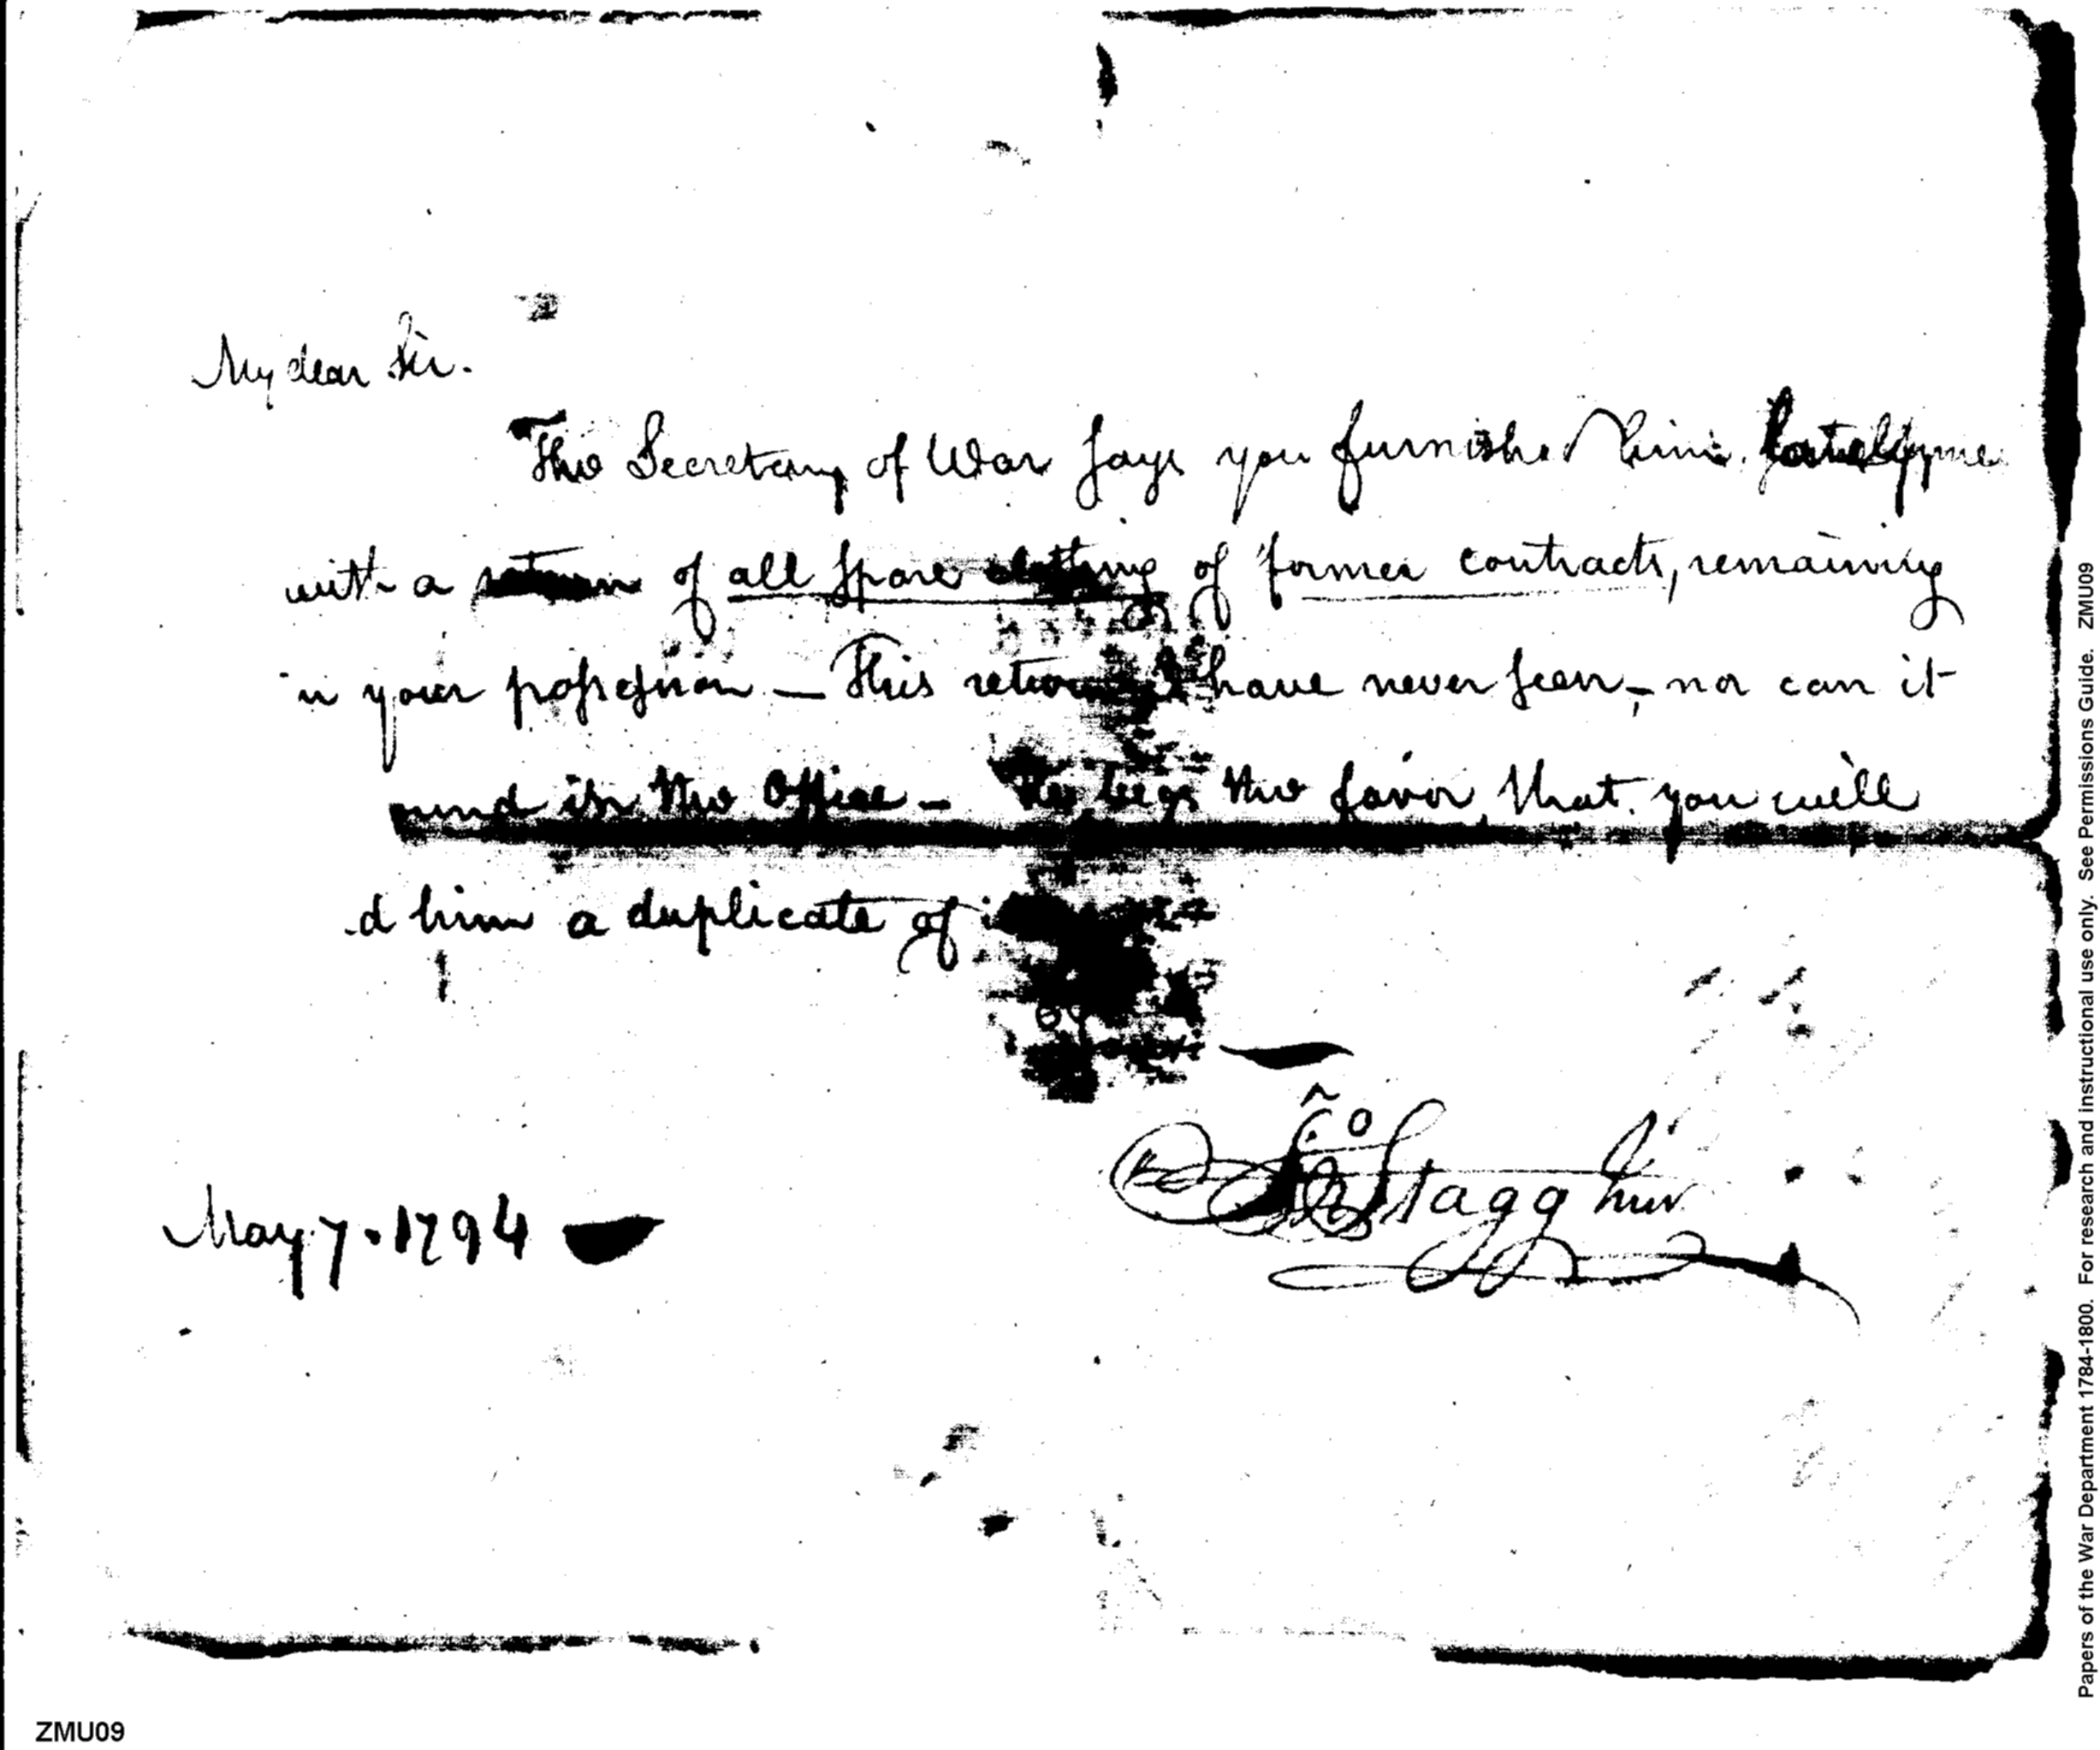 My dear Sir.
The Secretary of War says you furnished him lately
with a return of all spare clothing of former contracts, remaining
in your possession — This return I have never seen, — nor can it
in the Office — He begs the favor that you will
him a duplicate of
Stagg Jun
May 7. 1794
ZMU09
Papers of the War Department 1784-1800. For research and instructional use only. See Permissions Guide. ZMU09